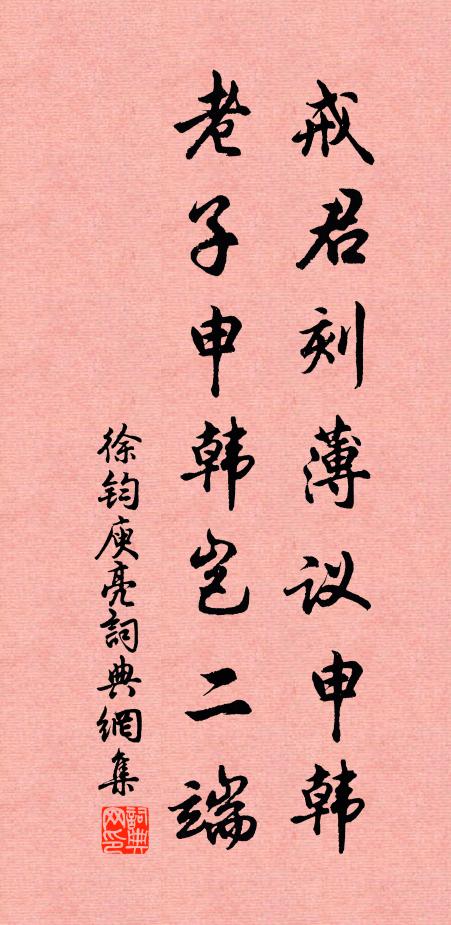 戒君刻薄议申韩
老子申韩岂二端
徐钧庾亮詞典網集
詞典网印